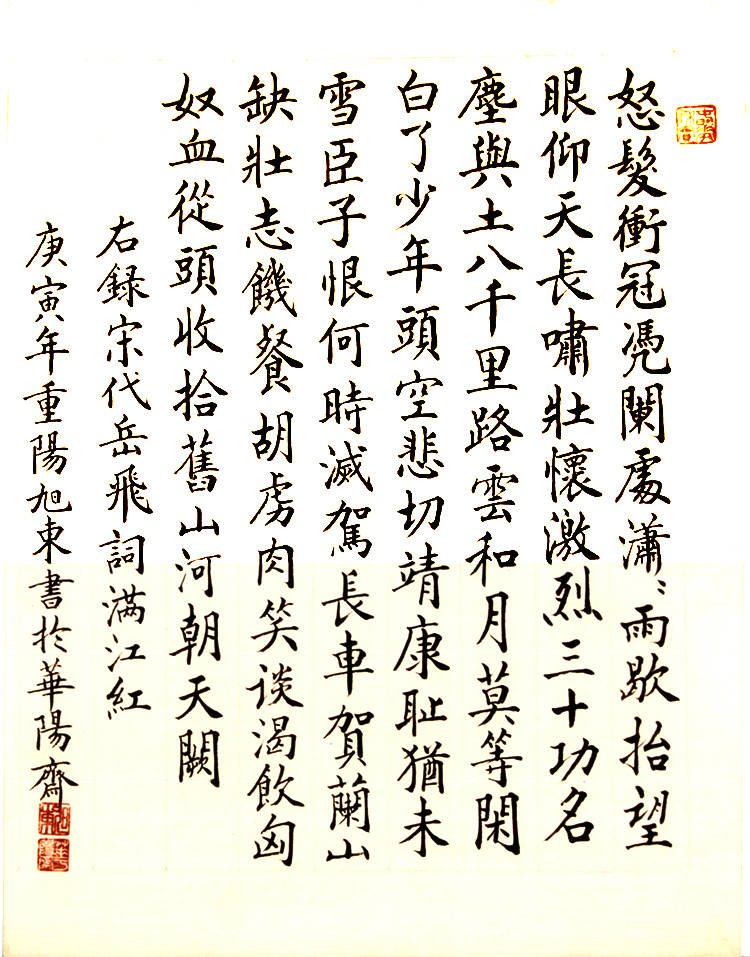 怒髮衝冠凴闌處瀟〻雨歇抬望
眼仰天長嘯壯懷激烈三十功名
塵與土八千里路雲和月莫等閑
白了少年頭空悲切靖康耻猶未
雪臣子恨何時滅駕長車賀蘭山
缺壯志饑餐胡虜肉笑谈渴飲匈
奴血從頭收拾舊山河朝天闕
右録宋代岳飛詞滿江紅
庚寅年重陽旭東書於華陽齋